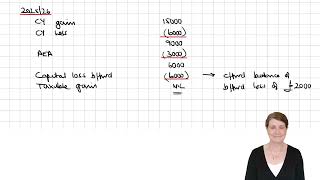 2025/26
CY gain 15000
CY Loss (6000)
9000
AEA (3000)
6000
Capital loss b/fwd (6000) → c/fwd balance of
Taxable gain NIL b/fwd loss of £2000